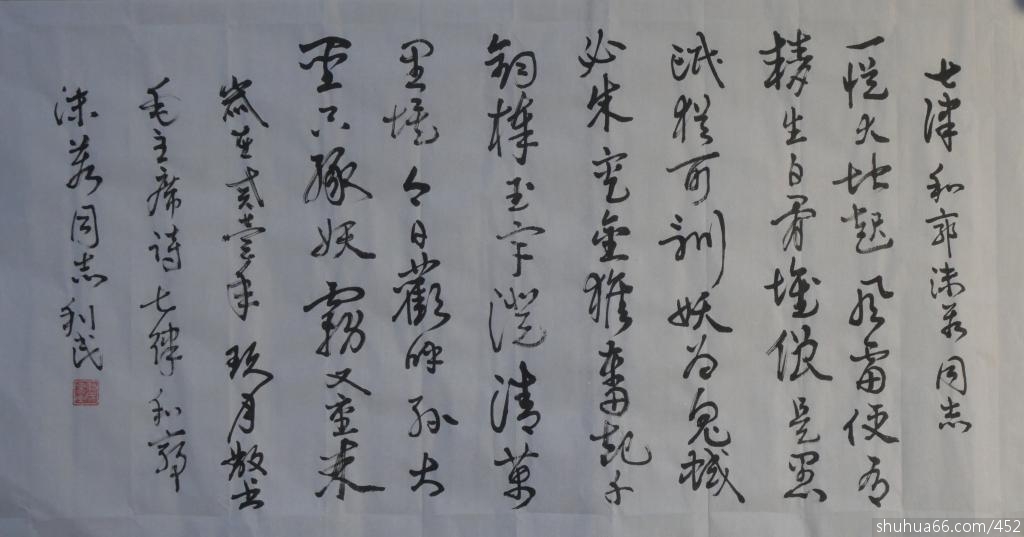 七律和郭沫若同志
一從大地起风雷便有
精生白骨堆僧是愚
氓猶可訓妖为鬼蜮
必成灾金猴奮起千
鈞棒玉宇澄清萬
里埃今日歡呼孫大
聖只緣妖霧又重来
歲在年玖月敬书
毛主席詩七律和郭
沫若同志利民
shuhua66.com/452